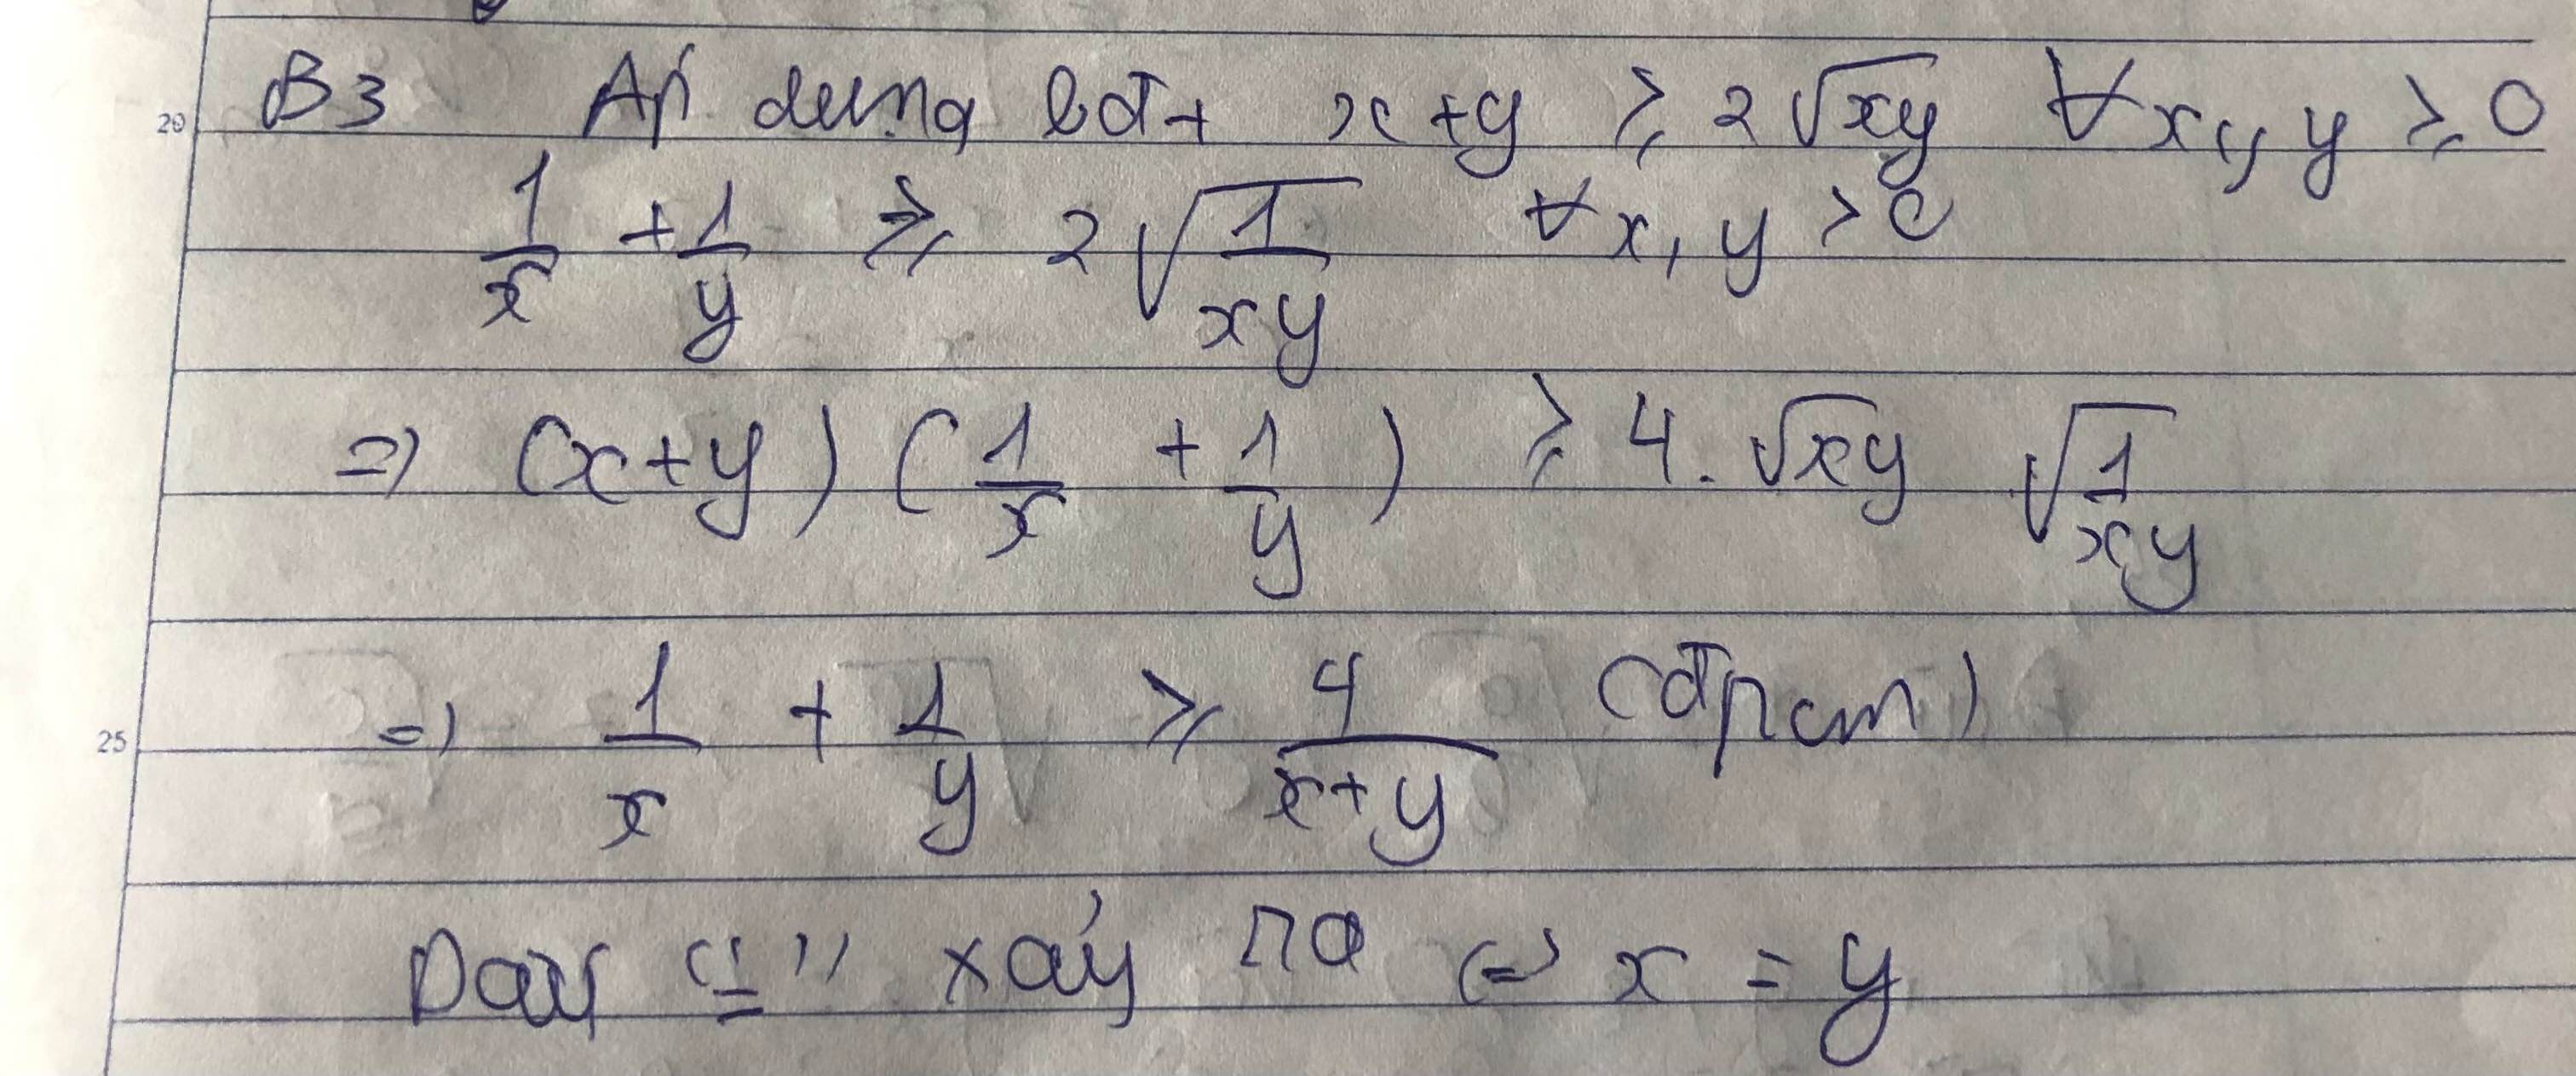 20 B3 Áp dụng bđt x+y ≥ 2√xy ∀x, y ≥ 0
1/x + 1/y ≥ 2√(1/xy) ∀x, y > 0
=> (x+y) (1/x + 1/y) ≥ 4. √xy √(1/xy)
25 => 1/x + 1/y ≥ 4/(x+y) (đpcm)
Dấu "=" xảy ra <=> x = y